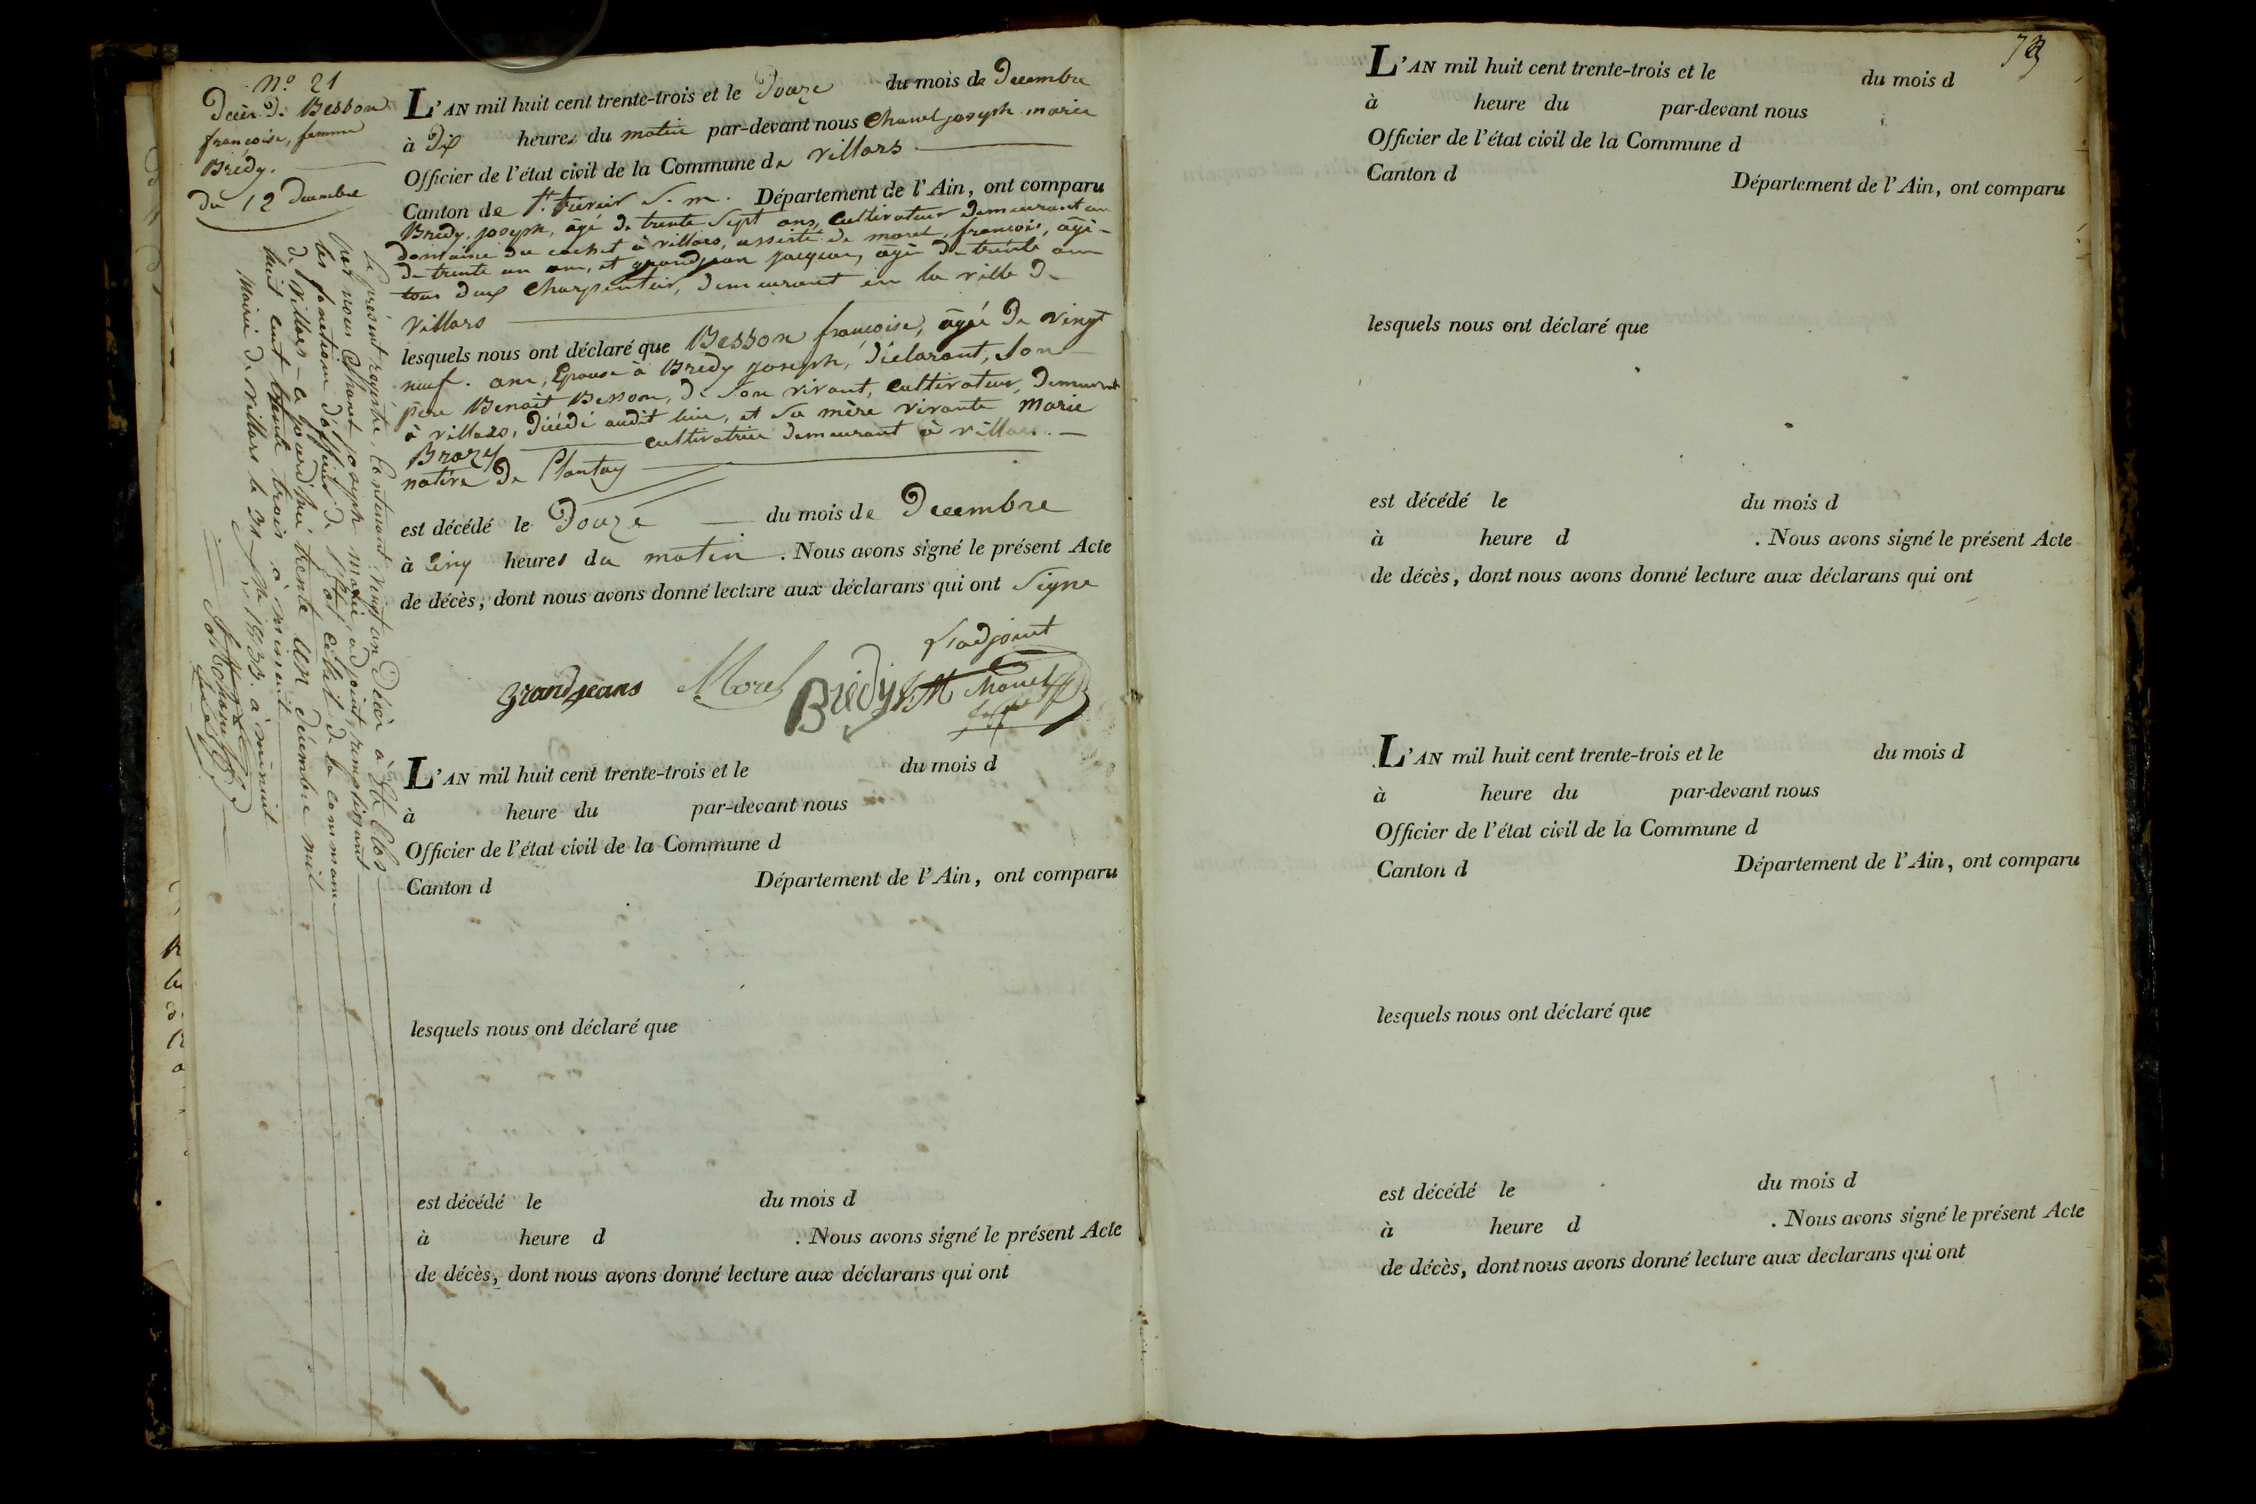 N.° 21
Décès De Besson
françoise, femme
Brédy.
Du 12 Decembre
L'AN mil huit cent trente-trois et le Douze du mois de Decembre
à Dix heures du matin par-devant nous Chanel joseph marie
Officier de l'état civil de la Commune de Villars
Canton de St. trivier S. m. Département de l'Ain, ont comparu
Brédy joseph, âgé de trente sept ans, Cultivateur Demeurant au
domaine du cachet à villars, assisté de morel, francois, âgé
de trente un ans, et grandjean jacques, âgé de trente ans
tous deux Charpentier, demeurant en la ville de
Villars
lesquels nous ont déclaré que Besson françoise, âgée De vingt
neuf ans, Epouse à Brédy joseph, déclarant, son
père Benoit Besson, De son vivant, Cultivateur, Demeurant
à villars, décédé audit lieu, et sa mère vivante Marie
Brazy cultivatrice demeurant à villars.
native De Plantay
est décédé le Douze du mois de Decembre
à cinq heures du matin. Nous avons signé le présent Acte
de décès, dont nous avons donné lecture aux déclarans qui ont Signé
L'adjoint
grandjeans Morel Brédy J M Chanel
Le présent régistre, Contenant vingt un Décès à été Clos
Par nous Chanel joseph marie, adjoint remplissant
les fonctions d'officier de l'état civil de la commune
de Villars ce jourd'hui trente un décembre mil
huit cent trente trois à minuit
Mairie de Villars le 31 1833. à minuit
L'AN mil huit cent trente-trois et le du mois d
à heure du par-devant nous
Officier de l'état civil de la Commune d
Canton d Département de l'Ain, ont comparu
lesquels nous ont déclaré que
est décédé le du mois d
à heure d . Nous avons signé le présent Acte
de décès, dont nous avons donné lecture aux déclarans qui ont
L'AN mil huit cent trente-trois et le du mois d
à heure du par-devant nous
Officier de l'état civil de la Commune d
Canton d Département de l'Ain, ont comparu
lesquels nous ont déclaré que
est décédé le du mois d
à heure d . Nous avons signé le présent Acte
de décès, dont nous avons donné lecture aux déclarans qui ont
L'AN mil huit cent trente-trois et le du mois d
à heure du par-devant nous
Officier de l'état civil de la Commune d
Canton d Département de l'Ain, ont comparu
lesquels nous ont déclaré que
est décédé le du mois d
à heure d . Nous avons signé le présent Acte
de décès, dont nous avons donné lecture aux déclarans qui ont